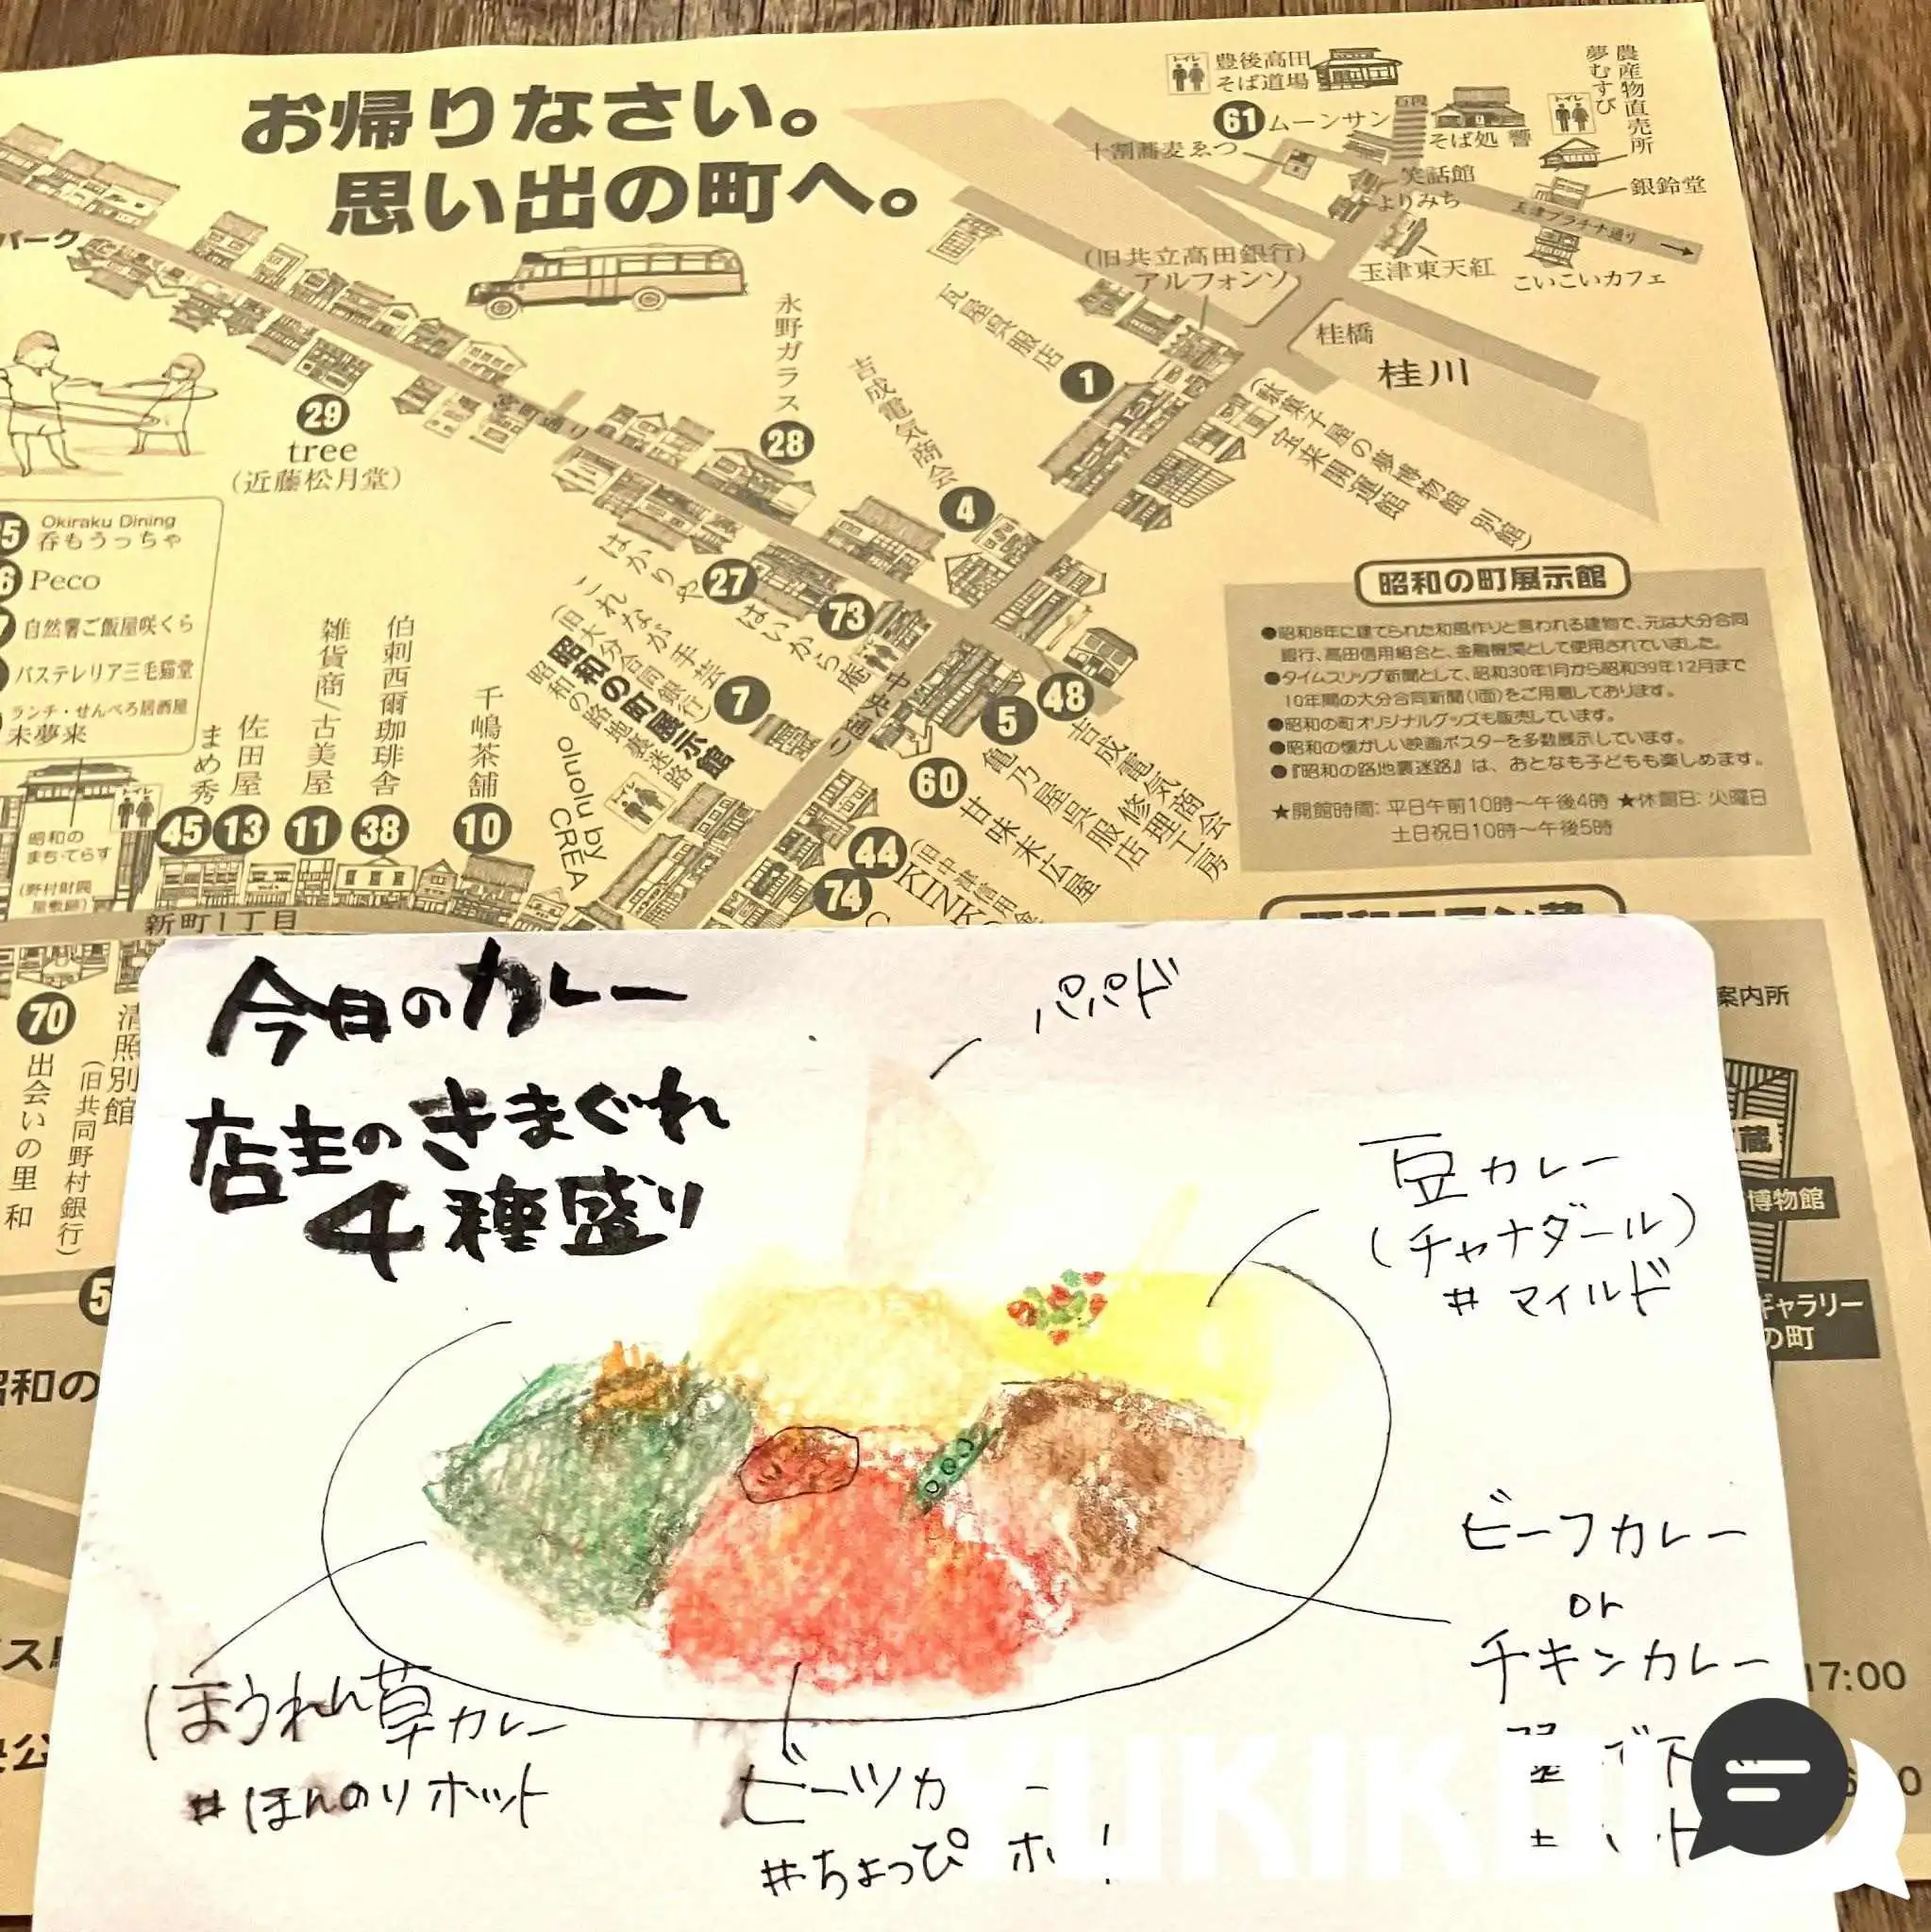 お帰りなさい。
思い出の町へ。
豊後高田
そば道場
トイレ
61 ムーンサン
十割蕎麦ゑつ
そば処 響
農産物直売所
夢むすび
トイレ
笑話館
よりみち
銀鈴堂
玉津プラチナ通り
玉津東天紅
こいこいカフェ
(旧共立高田銀行)
アルフォンソ
瓦屋呉服店
1
桂橋
桂川
(駄菓子屋の夢博物館 別館)
宝来開運館
パーク
29
tree
(近藤松月堂)
永野ガラス
28
吉成電気商会
4
宮町通り
はかりや
27
はいから庵
73
これながや手芸
(旧大分合同銀行)
昭和の町展示館
昭和の路地裏迷路
7
中央通り
5
亀乃屋呉服店
48
吉成電気商会
修理工房
60
甘味末広屋
44
74
oluolu by
CREA
トイレ
5 Okiraku Dining
呑もうっちゃ
6 Peco
自然薯ご飯屋咲くら
パステレリア三毛猫堂
ランチ・せんべろ居酒屋
未夢来
まめ秀
45
佐田屋
13
雑貨商/古美屋
11
伯剌西爾珈琲舎
38
千嶋茶舗
10
トイレ
昭和の
まち・てらす
(野村財閥
屋敷跡)
新町1丁目
70
出会いの里 和
清照別館
(旧共同野村銀行)
5
昭和の
昭和の町展示館
●昭和8年に建てられた和風作りと言われる建物で、元は大分合同
銀行、高田信用組合と、金融機関として使用されていました。
●タイムスリップ新聞として、昭和30年1月から昭和39年12月まで
10年間の大分合同新聞(1面)をご用意しております。
●昭和の町オリジナルグッズも販売しています。
●昭和の懐かしい映画ポスターを多数展示しています。
●『昭和の路地裏迷路』は、おとなも子どもも楽しめます。
★開館時間:平日午前10時〜午後4時 ★休館日:火曜日
土日祝日10時〜午後5時
案内所
蔵
博物館
ギャラリー
の町
17:00
今日のカレー
店主のきまぐれ
4種盛り
パパド
豆カレー
(チャナダール)
#マイルド
ビーフカレー
or
チキンカレー
ほうれん草カレー
#ほんのりホット
ビーツカ
#ちょっぴ ホ !